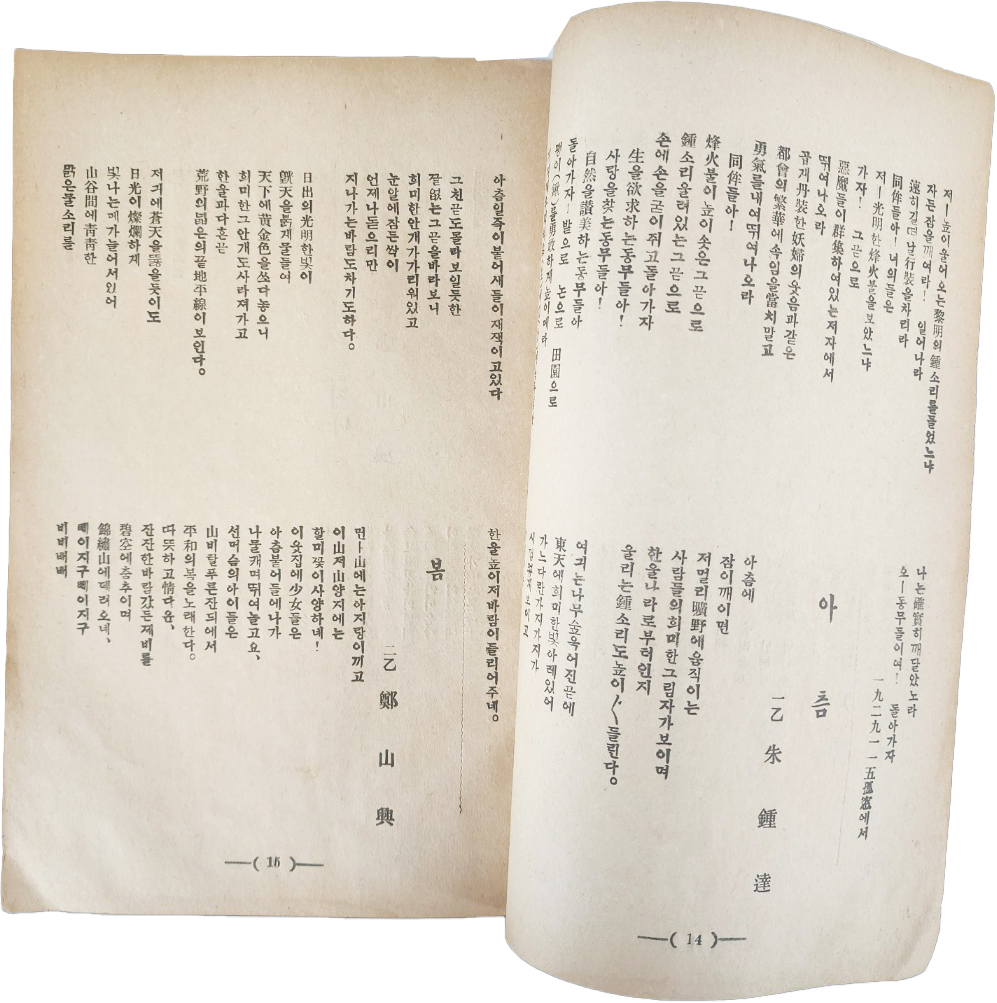 저ー높이울어오는黎明의鍾소리를들었느냐
자든잠을깨여라! 일어나라
遠히길떠날行裝을차리라
同伴들아! 너의들은
저ー光明한烽火불을보았느냐
가자! 그곧으로
惡魔들이群集하여있는저자에서
뛰여나오라
곱게丹裝한妖婦의웃음과같은
都會의繁華에속임을當치말고
勇氣를내여뛰여나오라
同伴들아!
烽火불이높이솟은그곧으로
鍾소리울려있는그곧으로
손에손을굳이쥐고돌아가자
生을欲求하는동무들아!
사랑을찾는동무들아!
自然을讚美하는동무들아
돌아가자ー밭으로 논으로 田園으로
나는確實히깨달았노라
오ー동무들이여! 돌아가자
一九二九 一一 五 孤窓에서
아츰
一乙 朱鍾達
아츰에
잠이깨이면
저멀리曠野에움직이는
사람들의희미한그림자가보이며
한울나라로부터인지
울리는鍾소리도높이〱들린다。
여긔는나무숲욱어진곧에
東天에희미한빛아레있어
가느다란가지가지가
―( 14 )―
아츰일즉이붙어새들이재잭이고있다
그천곧도몰라보일듯한
끝없는그곧을바라보니
희미한안개가가리워있고
눈앞에잠든싹이
언제나돋으리만
지나가는바람도차기도하다。
日出의光明한빛이
天을붉게물들여
天下에黃金色을쏘다놓으니
희미한그안개도사라져가고
한울과다흔곧
荒野의넓은의끝地平線이보인다。
저긔에蒼天을뚫을듯이도
日光이燦爛하게
빛나는메가늘어서있어
山谷間에靑靑한
맑은물소리를
한울높이저바람이들리어주네。
봄
二乙 鄭山興
먼ー山에는아지랑이끼고
이山저山양지에는
할미꽃이사양하네!
이웃집에少女들은
아츰붙어들에나가
나물캐며뛰여놀고요、
선머슴의아이들은
山비탈푸른잔듸에서
平和의봄을노래한다。
따뜻하고情다운、
잔잔한바람갔든제비를
碧空에춤추이며
錦繡山에떼려오네、
삐이지구삐이지구
비비배배
―( 15 )―